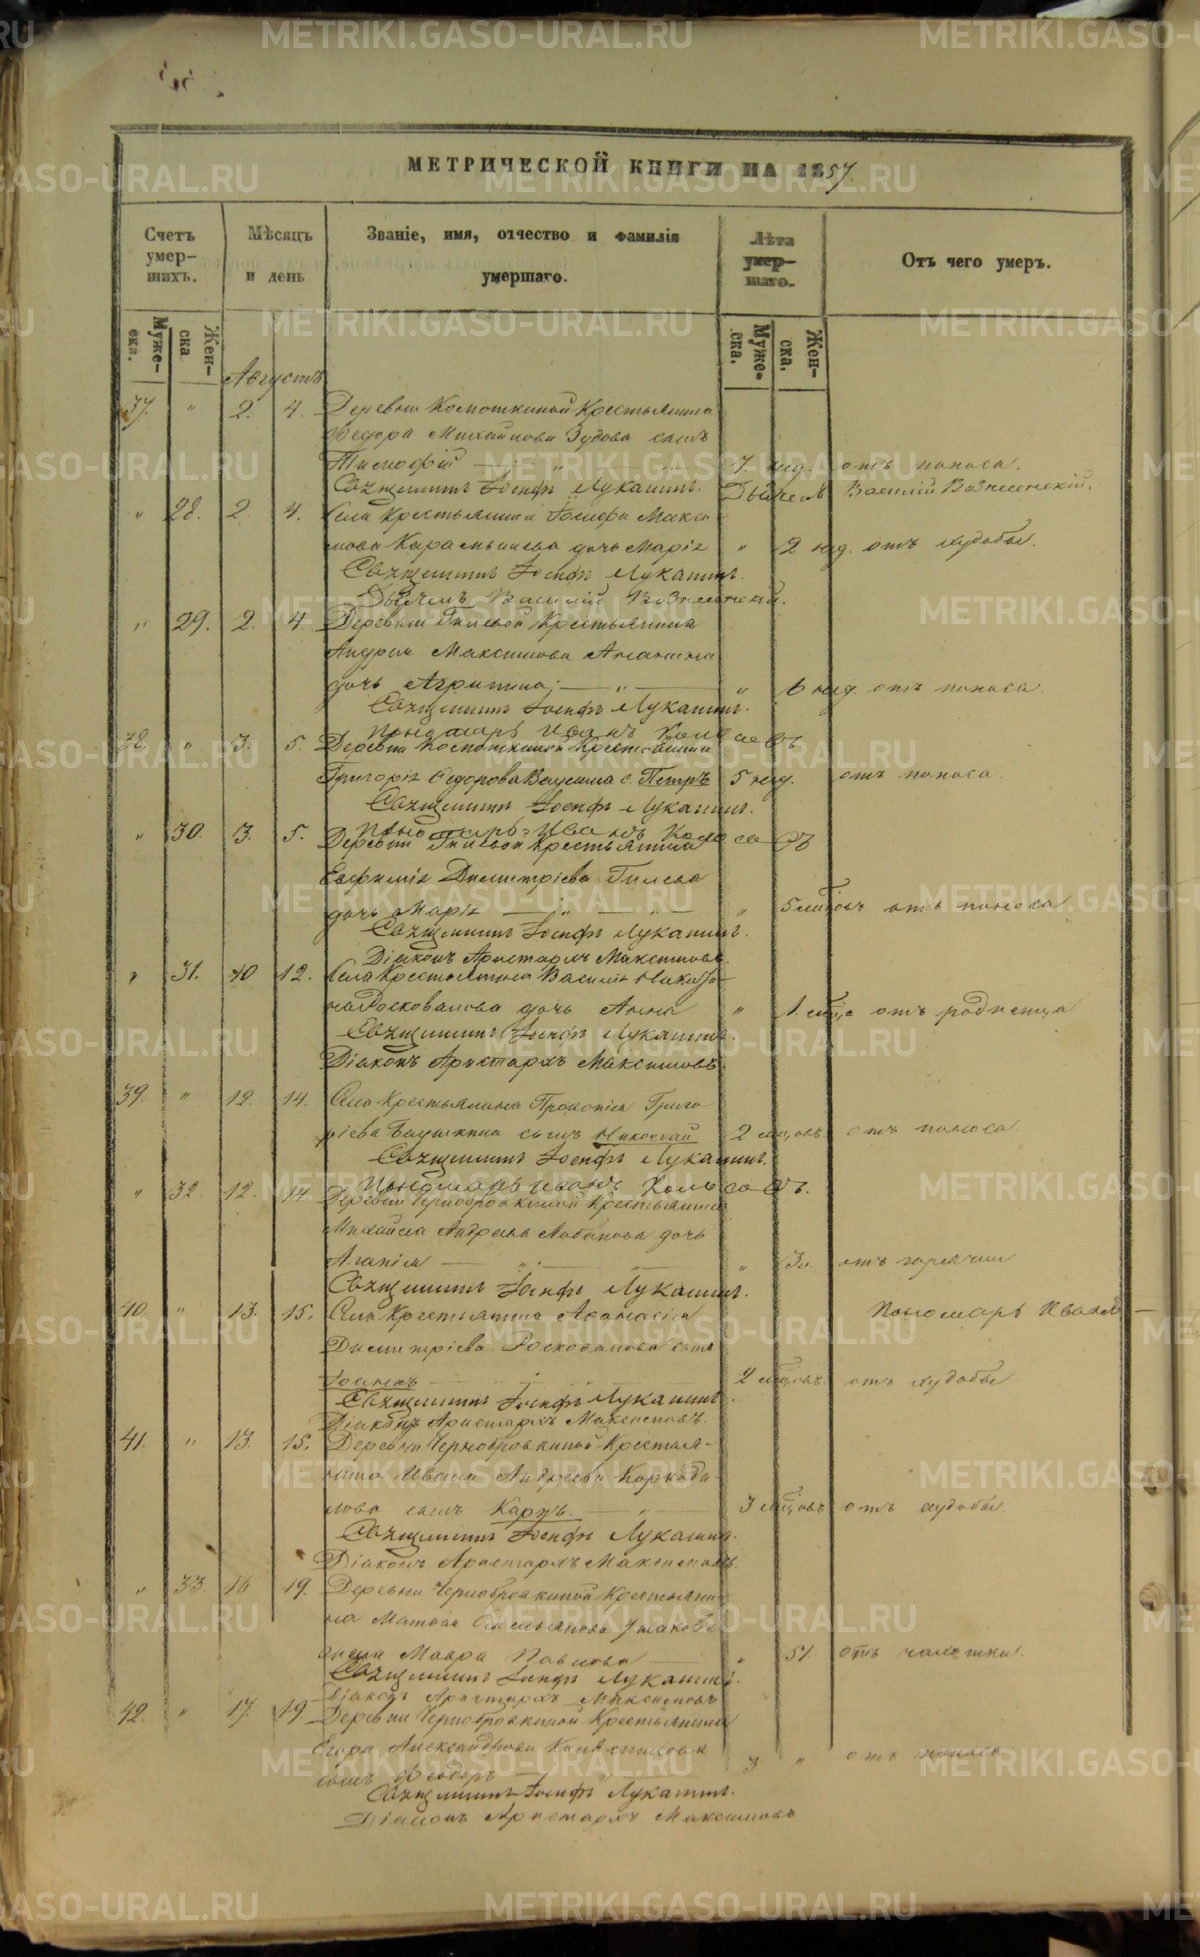 МЕТРИЧЕСКОЙ КНИГИ НА 1857.
Счетъ умер-шихъ.
Мѣсяцъ и день
Званіе, имя, отчество и фамилія умершаго.
Лѣта умер-шаго.
Отъ чего умеръ.
Муже-ска.
Жен-ска
Муже-ска.
Жен-ска.
Августъ
37. " 2. 4. Деревни Крестьянина
Федора Михайлова Зудова сынъ
7. нед. отъ поноса.
Священникъ Іосифъ Лукашинъ. Дьячекъ Василій Вознесенскій.
" 28. 2 4. Села Крестьянина Іосифа Макси-
мова дочь Марія " 2 нед. отъ худобы.
Священникъ Іосифъ Лукашинъ.
Дьячекъ Василій Вознесенскій.
" 29. 2. 4. Деревни Гилевой Крестьянина
Андрея Максимова
дочь Агрипина; " " 6 нед. отъ поноса.
Священникъ Іосифъ Лукашинъ.
Пономарь Иванъ
38. " 3. 5. Деревни Крестьянина
Григорія Федорова с. Петръ 5 нед. отъ поноса.
Священникъ Іосифъ Лукашинъ.
Пономарь Иванъ
" 30. 3. 5. Деревни Гилевой Крестьянина
Евфимія Димитріева Гилева
дочь Марія " 5 мѣсяцовъ отъ поноса
Священникъ Іосифъ Лукашинъ.
Діаконъ Аристархъ Максимовъ.
" 31. 10 12. Села Крестьянина Василія
дочь Анна " 1 мѣсяца отъ родимца
Священникъ Іосифъ Лукашинъ.
Діаконъ Аристархъ Максимовъ.
39. " 12. 14. Села Крестьянина Прокопія Григо-
ріева сынъ Николай 2 отъ поноса
Священникъ Іосифъ Лукашинъ.
Пономарь Иванъ
" 32. 12. 14. Деревни Чернобровкиной Крестьянина
Михаила Андреева Лобанова дочь
Агапія " " отъ горячки
Священникъ Іосифъ Лукашинъ.
Пономарь Иванъ
40. " 13. 15. Села Крестьянина Афанасія
Димитріева сынъ
Іоаннъ 2 отъ худобы
Священникъ Іосифъ Лукашинъ.
Діаконъ Аристархъ Максимовъ.
41. " 13. 15. Деревни Чернобровкиной Крестья-
нина Ивана Андреева Коркоди-
лова сынъ Карпъ. 3 отъ худобы
Священникъ Іосифъ Лукашинъ.
Діаконъ Аристархъ Максимовъ.
" 33. 16 19. Деревни Чернобровкиной Крестьяни-
на Емельянова Ушакова
жена Мавра Павлова " 51. отъ чахотки.
Священникъ Іосифъ Лукашинъ.
Діаконъ Аристархъ Максимовъ
42. " 17. 19. Деревни Чернобровкиной Крестьянина
Егора Александрова
сынъ Феодоръ 3 " отъ поноса
Священникъ Іосифъ Лукашинъ.
Діаконъ Аристархъ Максимовъ
METRIKI.GASO-URAL.RU